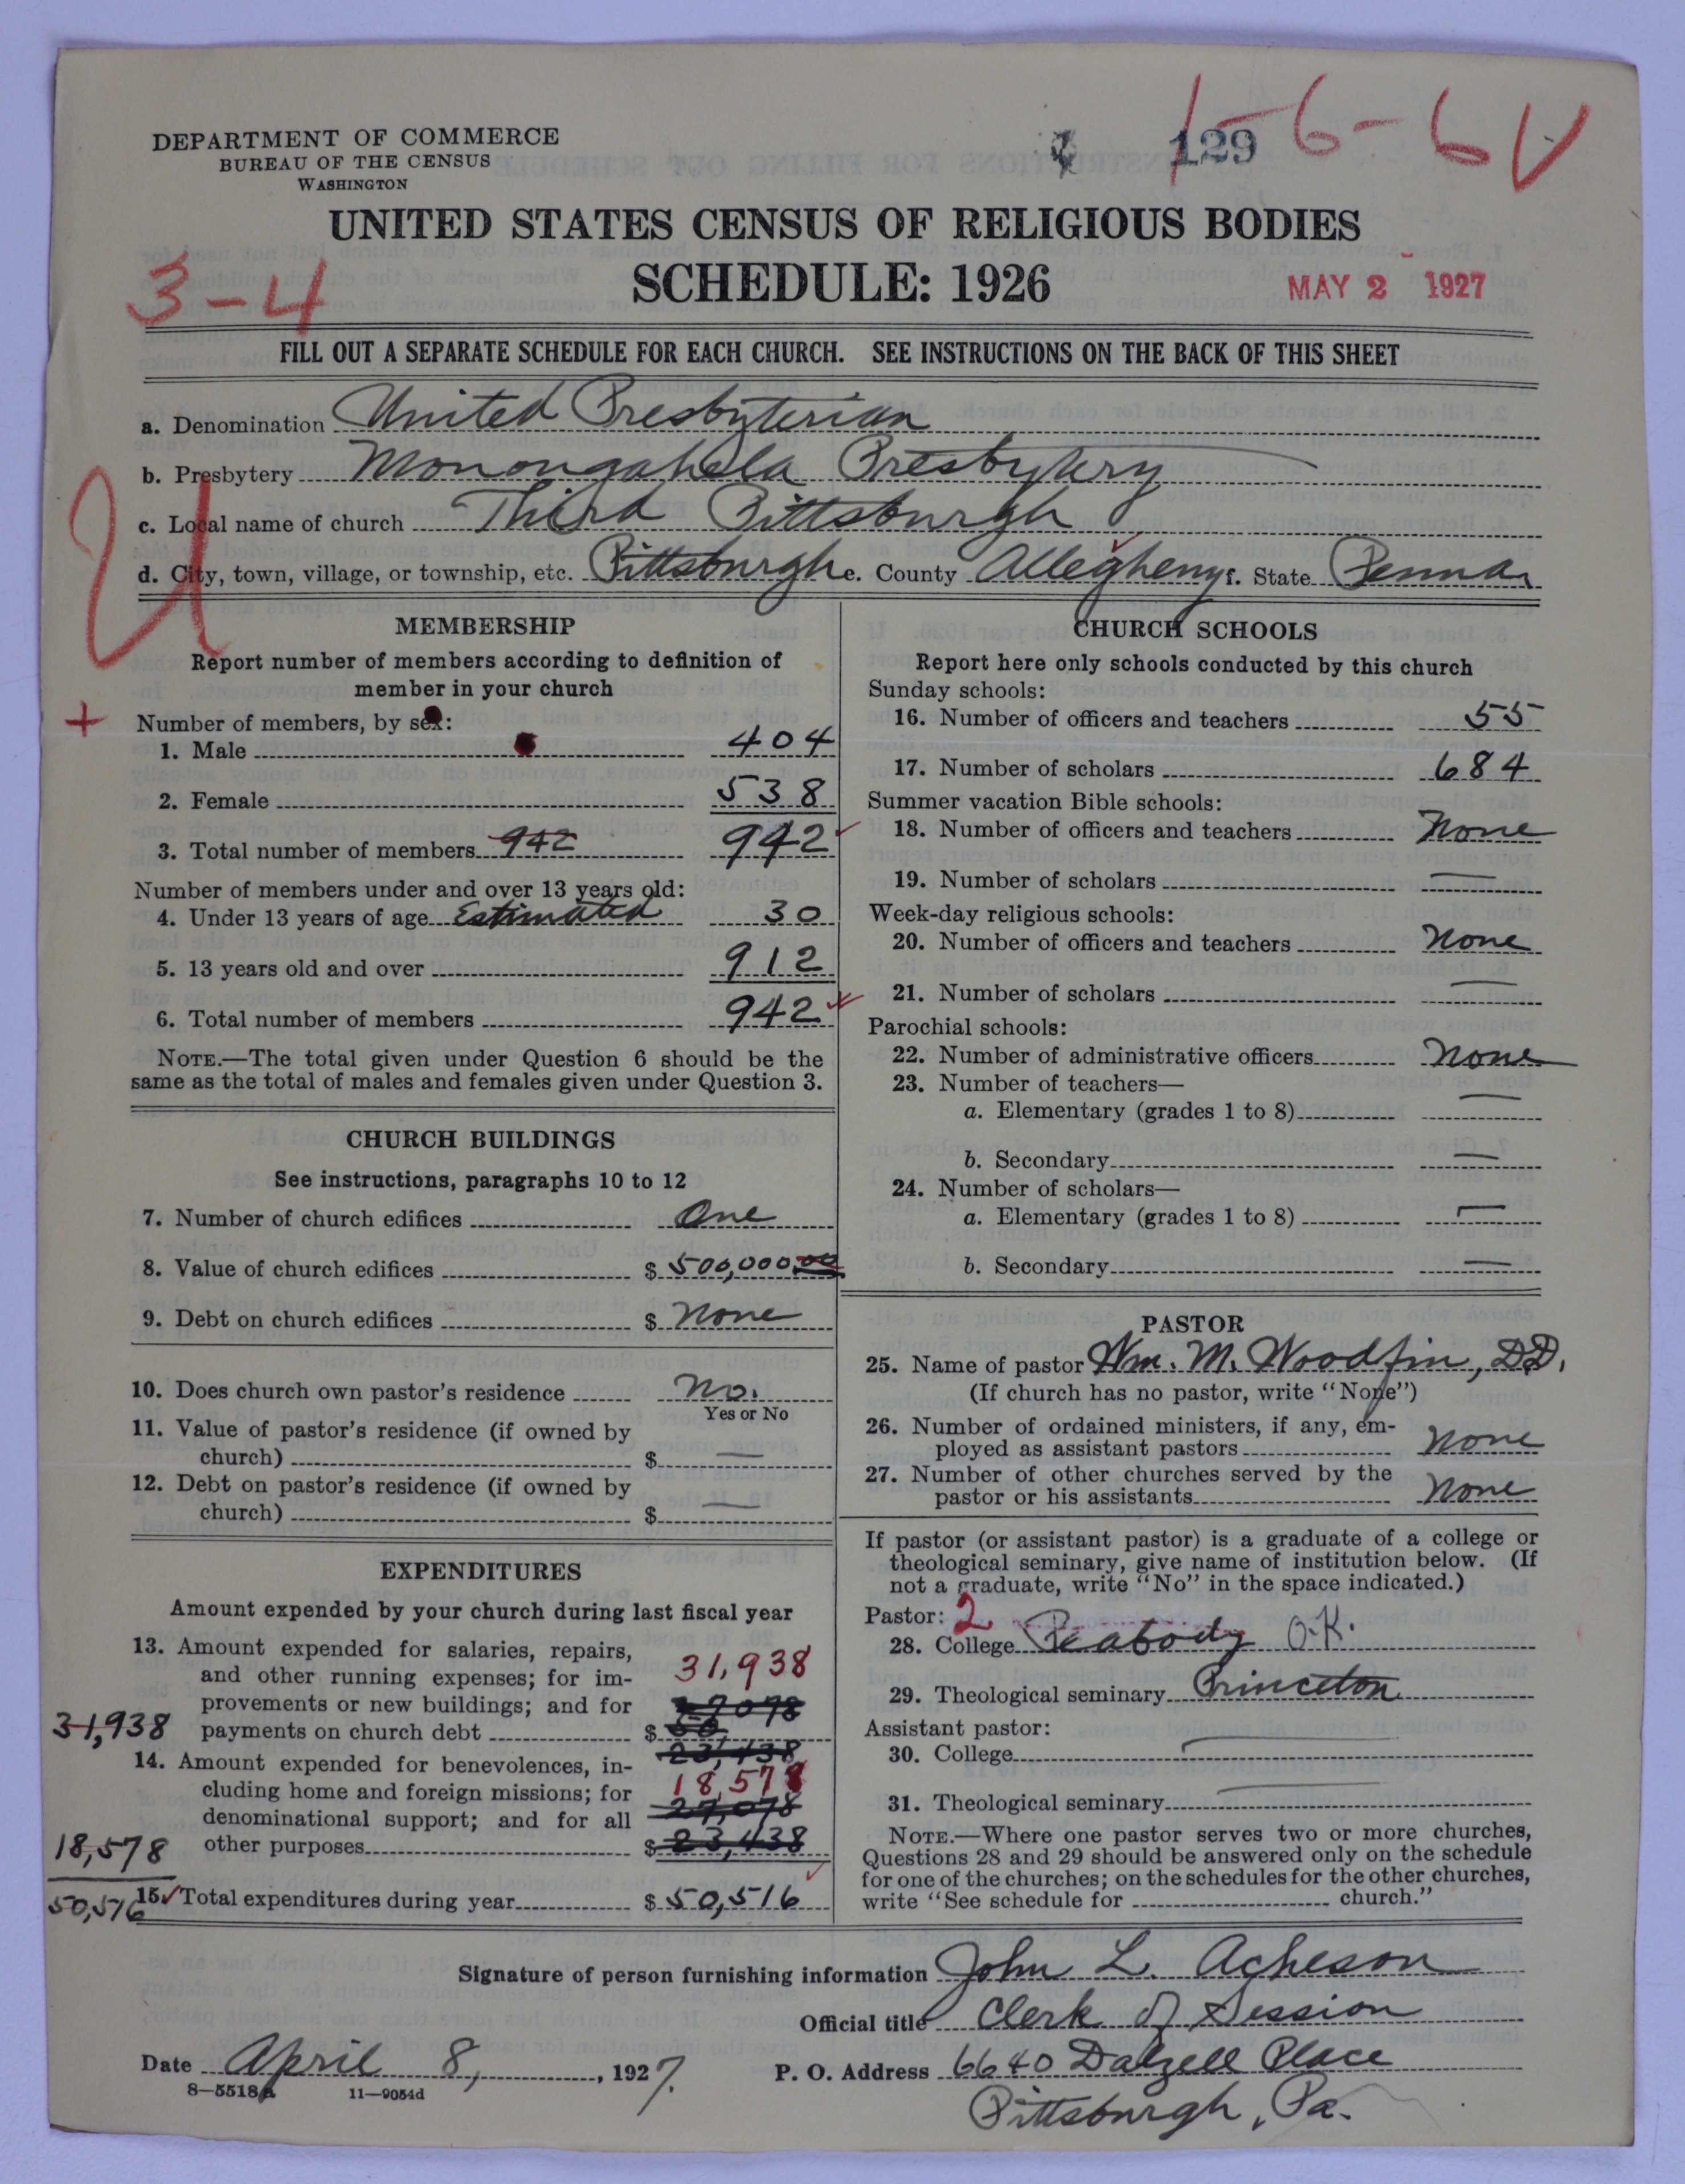 1-6-6 V
129
DEPARTMENT OF COMMERCE
BUREAU OF THE CENSUS
WASHINGTON
UNITED STATES CENSUS OF RELIGIOUS BODIES
SCHEDULE: 1926
MAY 2 1927
3-4
FILL OUT A SEPARATE SCHEDULE FOR EACH CHURCH. SEE INSTRUCTIONS ON THE BACK OF THIS SHEET
a. Denomination United Presbyterian
b. Presbytery Monongahela Presbytery
c. Local name of church Third Pittsburgh
d. City, town, village, or township, etc. Pittsburgh e. County Allegheny f. State Penna
U
MEMBERSHIP
Report number of members according to definition of
member in your church
+ Number of members, by sex:
1. Male 404
2. Female 538
3. Total number of members 942 942
Number of members under and over 13 years old:
4. Under 13 years of age Estimated 30
5. 13 years old and over 912
6. Total number of members 942
NOTE.—The total given under Question 6 should be the
same as the total of males and females given under Question 3.
CHURCH BUILDINGS
See instructions, paragraphs 10 to 12
7. Number of church edifices One
8. Value of church edifices $ 500,000.00
9. Debt on church edifices $ None
10. Does church own pastor's residence No.
Yes or No
11. Value of pastor's residence (if owned by
church) $ —
12. Debt on pastor's residence (if owned by
church) $ —
EXPENDITURES
Amount expended by your church during last fiscal year
13. Amount expended for salaries, repairs,
and other running expenses; for im-
provements or new buildings; and for
payments on church debt $
31,938
31,938
23,438
14. Amount expended for benevolences, in-
cluding home and foreign missions; for
denominational support; and for all
other purposes $ 23,438
18,578
27,078
18,578
15. Total expenditures during year $ 50,516
50,516
CHURCH SCHOOLS
Report here only schools conducted by this church
Sunday schools:
16. Number of officers and teachers 55
17. Number of scholars 684
Summer vacation Bible schools:
18. Number of officers and teachers None
19. Number of scholars —
Week-day religious schools:
20. Number of officers and teachers None
21. Number of scholars —
Parochial schools:
22. Number of administrative officers None
23. Number of teachers—
a. Elementary (grades 1 to 8) —
b. Secondary —
24. Number of scholars—
a. Elementary (grades 1 to 8) —
b. Secondary —
PASTOR
25. Name of pastor Wm. M. Woodfin, D.D.
(If church has no pastor, write "None")
26. Number of ordained ministers, if any, em-
ployed as assistant pastors None
27. Number of other churches served by the
pastor or his assistants None
If pastor (or assistant pastor) is a graduate of a college or
theological seminary, give name of institution below. (If
not a graduate, write "No" in the space indicated.)
Pastor: 2
28. College Peabody O.K.
29. Theological seminary Princeton
Assistant pastor:
30. College —
31. Theological seminary —
NOTE.—Where one pastor serves two or more churches,
Questions 28 and 29 should be answered only on the schedule
for one of the churches; on the schedules for the other churches,
write "See schedule for church."
Signature of person furnishing information John L. Acheson
Official title Clerk of Session
Date April 8, 1927. P. O. Address 6640 Dalzell Place
Pittsburgh, Pa.
8—5518a 11—9054d